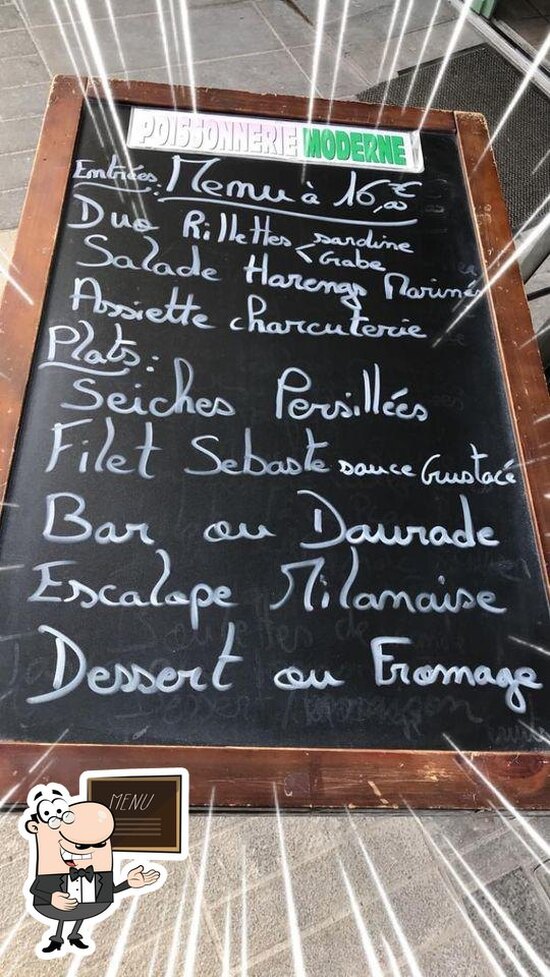 POISSONNERIE MODERNE
Entrées: Menu à 16,00€
Duo Rillettes < sardine
Crabe
Salade Harengs Marinés
Assiette charcuterie
Plats:
Seiches Persillées
Filet Sebaste sauce Crustacé
Bar ou Daurade
Escalope Milanaise
Dessert ou Fromage
MENU